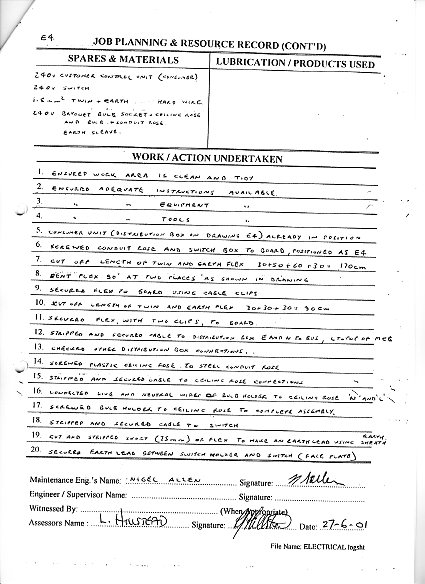 E4
JOB PLANNING & RESOURCE RECORD (CONT'D)
SPARES & MATERIALS
LUBRICATION / PRODUCTS USED
240V CUSTOMER CONTROL UNIT (CONSUMER)
240V SWITCH
1.5mm² TWIN + EARTH HARD WIRE
240V BAYONET BULB SOCKET + CEILING ROSE
AND BULB + CONDUIT ROSE
EARTH SLEAVE.
WORK / ACTION UNDERTAKEN
1. ENSURED WORK AREA IS CLEAN AND TIDY
2. ENSURED ADEQUATE INSTRUCTIONS AVAILABLE.
3. " " EQUIPMENT "
4. " " TOOLS "
5. CONSUMER UNIT (DISTRIBUTION BOX ON DRAWING E4) ALREADY IN POSITION
6. SCREWED CONDUIT ROSE AND SWITCH BOX TO BOARD, POSITIONED AS E4
7. CUT OFF LENGTH OF TWIN AND EARTH FLEX 30+50+60+30 = 170cm
8. BENT FLEX 90° AT TWO PLACES AS SHOWN IN DRAWING
9. SECURED FLEX TO BOARD USING CABLE CLIPS
10. CUT OFF LENGTH OF TWIN AND EARTH FLEX 30+30+30 = 90cm
11. SECURED FLEX, WITH TWO CLIPS, TO BOARD.
12. STRIPPED AND SECURED CABLE TO DISTRIBUTION BOX E AND N TO BUS, L TO TOP OF MCB
13. CHECKED OTHER DISTRIBUTION BOX CONNECTIONS.
14. SCREWED PLASTIC CEILING ROSE TO STEEL CONDUIT ROSE
15. STRIPPED AND SECURED CABLE TO CEILING ROSE CONNECTIONS
16. CONNECTED LIVE AND NEUTRAL WIRES OF BULB HOLDER TO CEILING ROSE 'N' AND 'L'
17. SCREWED BULB HOLDER TO CEILING ROSE TO COMPLETE ASSEMBLY.
18. STRIPPED AND SECURED CABLE TO SWITCH
19. CUT AND STRIPPED SHORT (75mm) OF FLEX TO MAKE AN EARTH LEAD USING EARTH SHEATH
20. SECURED EARTH LEAD BETWEEN SWITCH HOLDER AND SWITCH (FACE PLATE)
Maintenance Eng.'s Name: NIGEL ALLEN Signature: N Allen
Engineer / Supervisor Name: Signature:
Witnessed By: (When Appropriate)
Assessors Name: L. HILSTEAD Signature: Date: 27-6-01
File Name: ELECTRICAL logsht